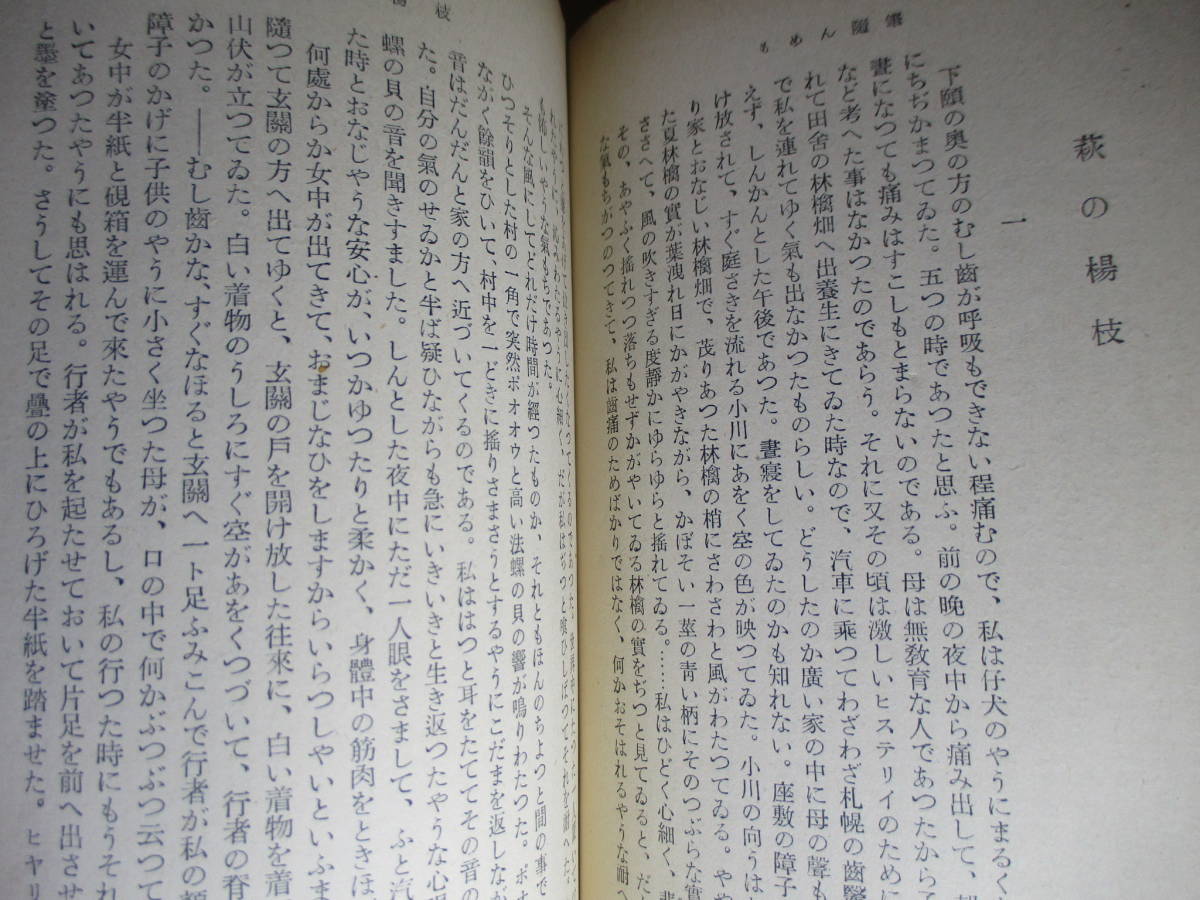 もめん隨筆
萩の楊枝
一
下顎の奥の方のむし齒が呼吸もできない程痛むので、私は仔犬のやうにまるく
にちぢかまつてゐた。五つの時であつたと思ふ。前の晩の夜中から痛み出して、朝
晝になつても痛みはすこしもとまらないのである。母は無敎育な人であつたから子
など考へた事はなかつたのであらう。それに又その頃は激しいヒステリイのために
れて田舍の林檎畑へ出養生にきてゐた時なので、汽車に乘つてわざわざ札幌の齒醫
で私を連れてゆく氣も出なかつたものらしい。どうしたのか廣い家の中に母の聲も
えず、しんかんとした午後であつた。晝寢をしてゐたのかも知れない。座敷の障子
け放されて、すぐ庭さきを流れる小川にあをく空の色が映つてゐた。小川の向うは
り家とおなじい林檎畑で、茂りあつた林檎の梢にさわさわと風がわたつてゐる。やや
た夏林檎の實が葉洩れ日にかがやきながら、かぼそい一莖の靑い柄にそのつぶらな實
ささへて、風の吹きすぎる度靜かにゆらゆらと搖れてゐる。……私はひどく心細く、悲
その、あやふく搖れつつ落ちもせずかがやいてゐる林檎の實をぢつと見てゐると、だ
な氣もちがつのつてきて、私は齒痛のためばかりではなく、何かおそはれるやうな耐へ
枝
も怖しいやうな氣もちであつた。
そんな風にしてどれだけ時間が經つたものか、それともほんのちよつと間の事で
ひつそりとした村の一角で突然ボオオウと高い法螺の貝の響が鳴りわたつた。ボオ
ながく餘韻をひいて、村中を一どきに搖りさまさうとするやうにこだまを返しなが
音はだんだんと家の方へ近づいてくるのである。私ははつと耳をたててその音の
た。自分の氣のせゐかと半ば疑ひながらも急にいきいきと生き返つたやうな心
螺の貝の音を聞きすました。しんとした夜中にただ一人眼をさまして、ふと汽
た時とおなじやうな安心が、いつかゆつたりと柔かく、身體中の筋肉をときほ
何處からか女中が出てきて、おまじなひをしますからいらつしやいといふま
隨つて玄關の方へ出てゆくと、玄關の戶を開け放した往來に、白い着物を着
山伏が立つてゐた。白い着物のうしろにすぐ空があをくつづいて、行者の脊
かつた。――むし齒かな、すぐなほると玄關へ一ト足ふみこんで行者が私の頰
障子のかげに子供のやうに小さく坐つた母が、口の中で何かぶつぶつ云つて
女中が半紙と硯箱を運んで來たやうでもあるし、私の行つた時にもうそれ
いてあつたやうにも思はれる。行者が私を起たせておいて片足を前へ出させ
と墨を塗つた。さうしてその足で疊の上にひろげた半紙を踏ませた。ヒヤリ